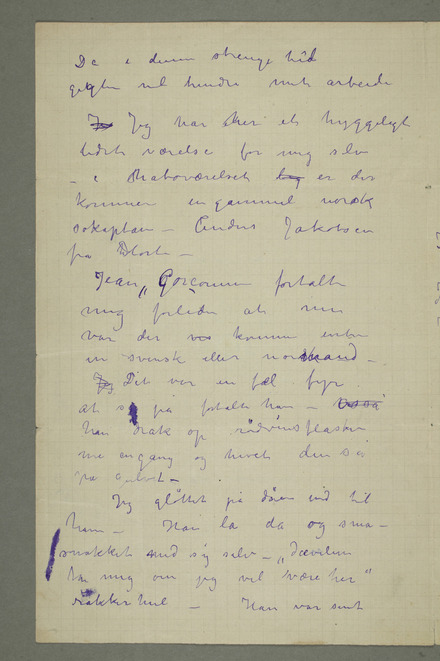 De i denne strenge tid
vil hindre mit arbeide
Jeg har her et hyggeligt
lidet værelse for mig selv
– i Naboværelset er der
kommen en gammel norsk
søkaptan – Anders Jakobsen
fra
Jean „ fortalte
mig forleden at nu
var der kommen enten
en svensk eller nordmand –
Det var en fæl fyr
at se på fortalte han –
han drak op rødvinsflasken
med engang og hivet den så
på gulvet –
Jeg gløttet på døren ind til
ham – Han lå da og små–
snakket med sig selv – „Dævelen
ta mig om jeg vil være her"
rakkerhul – Han var sint